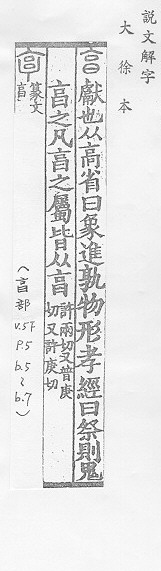 説文解字
大徐本
亯 獻也从高省曰象進孰物形孝經曰祭則鬼
亯之凡亯之屬皆从亯 許兩切又普庚
切又許庚切
篆文
亯
(亯部 v.5下 p5 b.5~b.7)